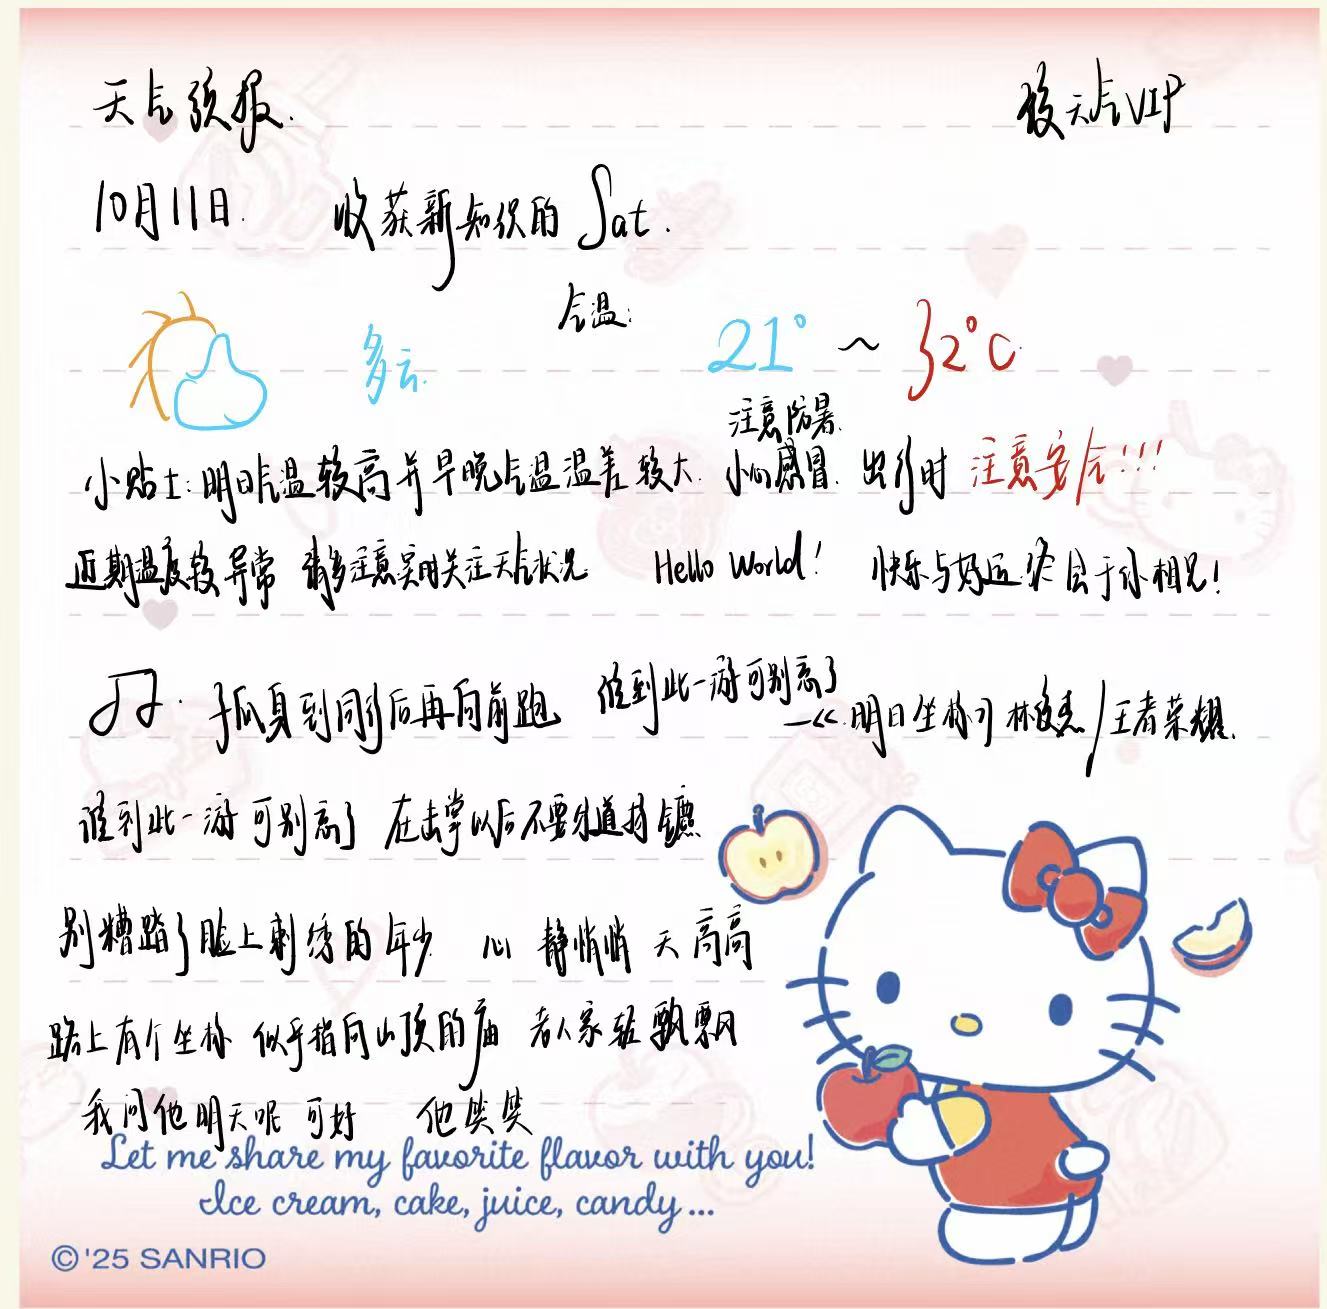 天气预报.
天气VIP
10月11日. 收获新知识的 Sat.
气温:
多云.
21° ~ 32°C.
注意防暑.
小贴士:明日气温较高并早晚气温温差较大. 小心感冒. 出行时 注意安全!!!
近期温度较异常 请多注意实时关注天气状况 Hello World! 快乐与好运终会于你相见!
孤身到同行后再向前跑 谁到此一游可别忘了
—<<明日坐标》林俊杰/王者荣耀.
谁到此一游 可别忘了 在击掌以后不要分道扬镳
别糟蹋了脸上刺绣的年少 心 静悄悄 天 高高
路上有个坐标 似乎指向山顶的庙 老人家轻飘飘
我问他明天呢 可好 他笑笑
Let me share my favorite flavor with you!
Ice cream, cake, juice, candy...
©'25 SANRIO